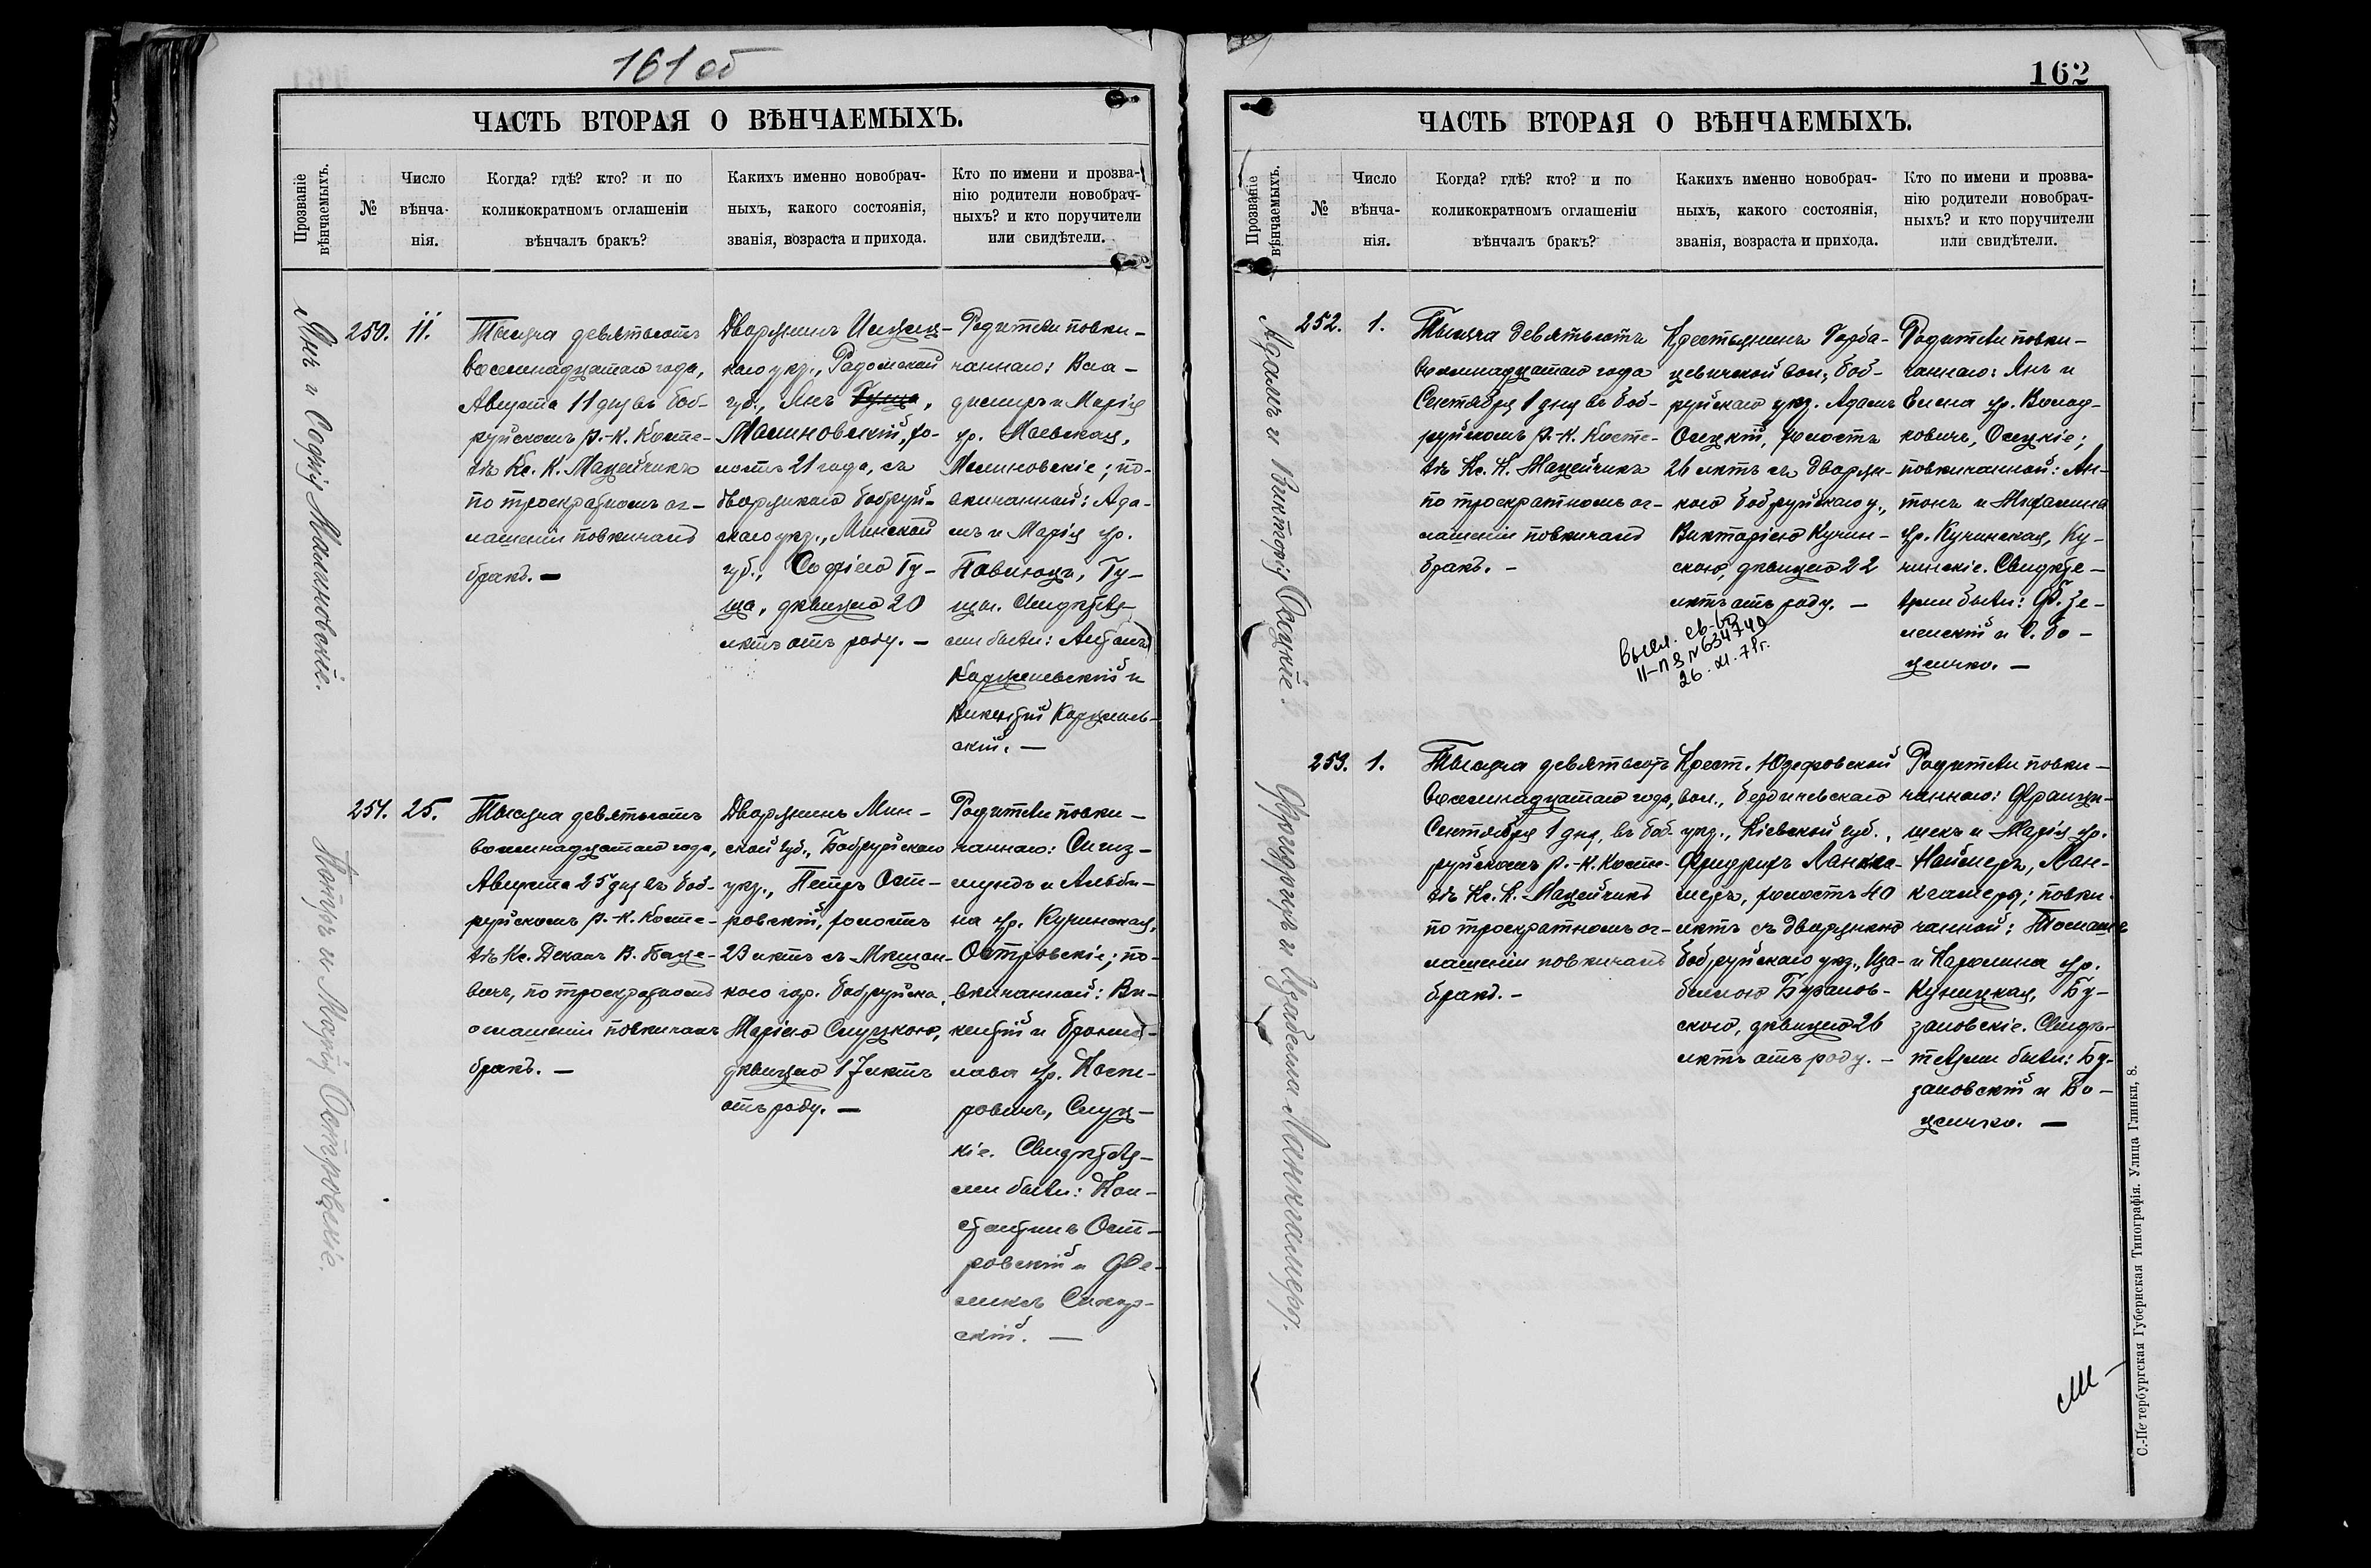 161 об
ЧАСТЬ ВТОРАЯ О ВѢНЧАЕМЫХЪ.
Прозваніе вѣнчаемыхъ.
№
Число вѣнча-нія.
Когда? гдѣ? кто? и по
коликократномъ оглашеніи
вѣнчалъ бракъ?
Какихъ именно новобрач-
ныхъ, какого состоянія,
званія, возраста и прихода.
Кто по имени и прозва-
нію родители новобрач-
ныхъ? и кто поручители
или свидѣтели.
Янъ и Софія Малиновскіе.
250.
11.
Тысяча девятьсотъ
восемнадцатаго года,
Августа 11 дня въ Боб-
руйскомъ Р.-К. Косте-
лѣ Кс. К. Мацейчикъ
по троекратномъ ог-
лашеніи повѣнчалъ
бракъ. —
Дворянинъ
каго уѣз., Радомской
губ., Янъ
Малиновскій, хо-
лостъ 21 года, съ
дворянкою Бобруй-
скаго уѣз., Минской
губ., Софіею Гу-
ща, дѣвицею 20
лѣтъ отъ роду. —
Родители повѣн-
чаннаго: Вла-
диміръ и Марія
ур. Маевская,
Малиновскіе; по-
вѣнчанной: Ада-
мъ и Марія ур.
Гу-
щи. Свидѣтеля-
ми были: Антонъ
и
Викентій
скій. —
Петръ и Марія Островскіе.
251.
25.
Тысяча девятьсотъ
восемнадцатаго года,
Августа 25 дня въ Боб-
руйскомъ Р.-К. Косте-
лѣ Кс. Деканъ В. Баце-
вичъ, по троекратномъ
оглашеніи повѣнчалъ
бракъ. —
Дворянинъ Мин-
ской губ., Бобруйскаго
уѣз., Петръ Ост-
ровскій, холостъ
23 лѣтъ съ Мѣщан-
кою гор. Бобруйска,
Маріею Слуцкою,
дѣвицею 17 лѣтъ
отъ роду. —
Родители повѣн-
чаннаго: Сигиз-
мундъ и Альби-
на ур. Кучинская,
Островскіе; по-
вѣнчанной: Ви-
кентій и Брони-
лава ур. Каспе-
ровичъ, Слуц-
кіе. Свидѣтеля-
ми были: Кон-
стантинъ Ост-
ровскій и Фе-
ликсъ Сикор-
скій. —
162
ЧАСТЬ ВТОРАЯ О ВѢНЧАЕМЫХЪ.
Прозваніе вѣнчаемыхъ.
№
Число вѣнча-нія.
Когда? гдѣ? кто? и по
коликократномъ оглашеніи
вѣнчалъ бракъ?
Какихъ именно новобрач-
ныхъ, какого состоянія,
званія, возраста и прихода.
Кто по имени и прозва-
нію родители новобрач-
ныхъ? и кто поручители
или свидѣтели.
Адамъ и Викторія Осецкіе.
252.
1.
Тысяча девятьсотъ
восемнадцатаго года
Сентября 1 дня въ Боб-
руйскомъ Р.-К. Косте-
лѣ Кс. К. Мацейчикъ
по троекратномъ ог-
лашеніи повѣнчалъ
бракъ. —
Крестьянинъ Горба-
цевичской вол., Боб-
руйскаго уѣз. Адамъ
Осецкій, холостъ
26 лѣтъ съ дворян-
кою Бобруйскаго у.,
Викторіею Кучин-
скою, дѣвицею 22
лѣтъ отъ роду. —
Высл. св-во
II-ПЗ N 634740
26. XI. 71г.
Родители повѣн-
чаннаго: Янъ и
Елена ур. Волод-
ковичъ, Осецкіе;
повѣнчанной: Ан-
тонъ и
ур. Кучинская, Ку-
чинскіе. Свидѣте-
лями были: Ф. Зе-
ленскій и О. Бо-
Фридрихъ и Изабелла Ланкгамеръ.
253.
1.
Тысяча девятьсотъ
восемнадцатаго года,
Сентября 1 дня, въ Боб-
руйскомъ Р.-К. Косте-
лѣ Кс. К. Мацейчикъ
по троекратномъ ог-
лашеніи повѣнчалъ
бракъ. —
Крест. Юзефовской
вол., Бердичевскаго
уѣз., Кіевской губ.,
Фридрихъ Ланкга-
меръ, холостъ 40
лѣтъ съ дворянкою
Бобруйскаго уѣз., Иза-
беллою Бузанов-
скою, дѣвицею 26
лѣтъ отъ роду. —
Родители повѣн-
чаннаго: Францы-
шекъ и Марія ур.
Наймеръ, Лан-
кгамеры; повѣн-
чанной: Томашъ
и Каролина ур.
Куницкая, Бу-
зановскіе. Свидѣ-
телями были: Бу-
зановскій и Бо-
С.-Петербургская Губернская Типографія. Улица Глинки, 8.